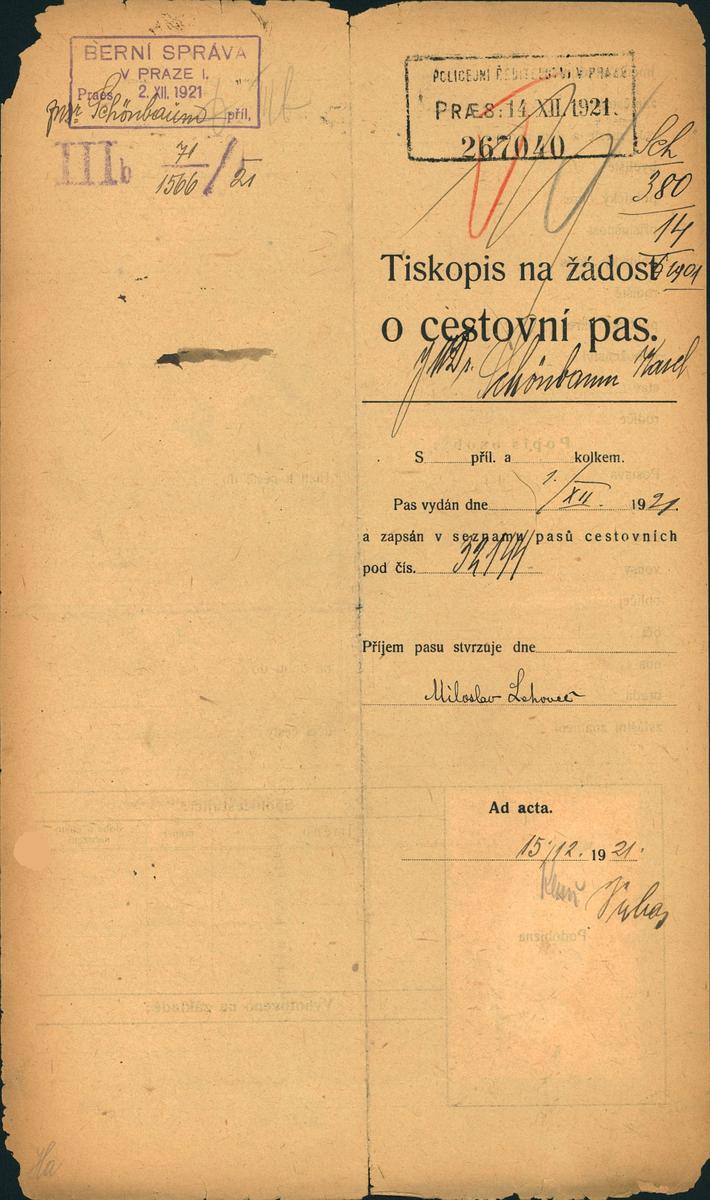 BERNÍ SPRÁVA
V PRAZE I.
Praes 2. XII. 1921
Schönbaum příl.
IIIb 71
1566 / 21
POLICEJNÍ ŘEDITELSTVÍ V PRAZE
PRÆS: 14 XII. 1921.
267040
Sch
380
14
Tiskopis na žádost
o cestovní pas.
JUDr. Schönbaum Karel
S příl. a kolkem.
Pas vydán dne 1./XII. 1921.
a zapsán v seznamu pasů cestovních
pod čís.
Příjem pasu stvrzuje dne
Miloslav Lehovec
Ad acta.
15./12. 1921.
Popis osoby:
Podobizna
Vyhotoveno na základě: